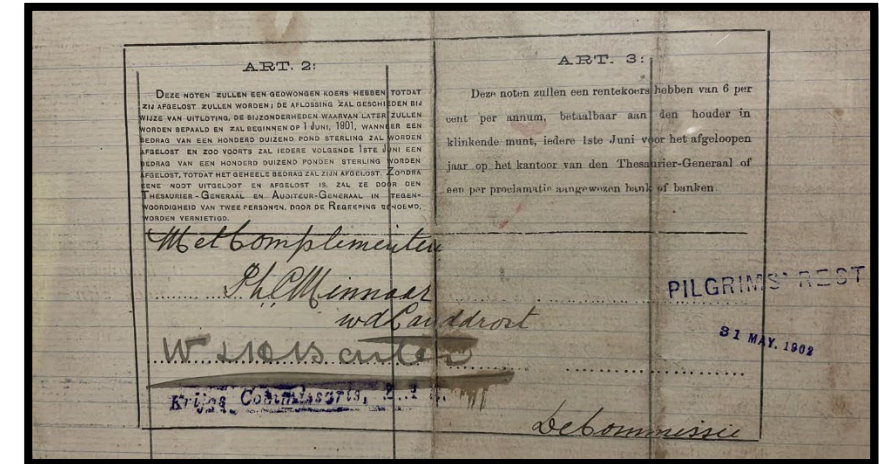 ART. 2:
DEZE NOTEN ZULLEN EEN GEDWONGEN KOERS HEBBEN TOTDAT
ZIJ AFGELOST ZULLEN WORDEN; DE AFLOSSING ZAL GESCHIEDEN BIJ
WIJZE VAN UITLOTING, DE BIJZONDERHEDEN WAARVAN LATER ZULLEN
WORDEN BEPAALD EN ZAL BEGINNEN OP 1 JUNI, 1901, WANNEER EEN
BEDRAG VAN EEN HONDERD DUIZEND POND STERLING ZAL WORDEN
AFGELOST EN ZOO VOORTS ZAL IEDERE VOLGENDE 1STE JUNI EEN
BEDRAG VAN EEN HONDERD DUIZEND PONDEN STERLING WORDEN
AFGELOST, TOTDAT HET GEHEELE BEDRAG ZAL ZIJN AFGELOST. ZOODRA
EENE NOOT UITGELOOT EN AFGELOST IS, ZAL ZE DOOR DEN
THESAURIER-GENERAAL EN AUDITEUR-GENERAAL IN TEGEN-
WOORDIGHEID VAN TWEE PERSONEN, DOOR DE REGEERING BENOEMD,
WORDEN VERNIETIGD.
ART. 3:
Deze noten zullen een rentekoers hebben van 6 per
cent per annum, betaalbaar aan den houder in
klinkende munt, iedere 1ste Juni voor het afgeloopen
jaar op het kantoor van den Thesaurier-Generaal of
een per proclamatie aangewezen bank of banken.
Met Complimenten
Ph. C. Minnaar
wd Landdrost
Krijgs Commissaris,
PILGRIMS' REST
31 MAY. 1902
De Commissie